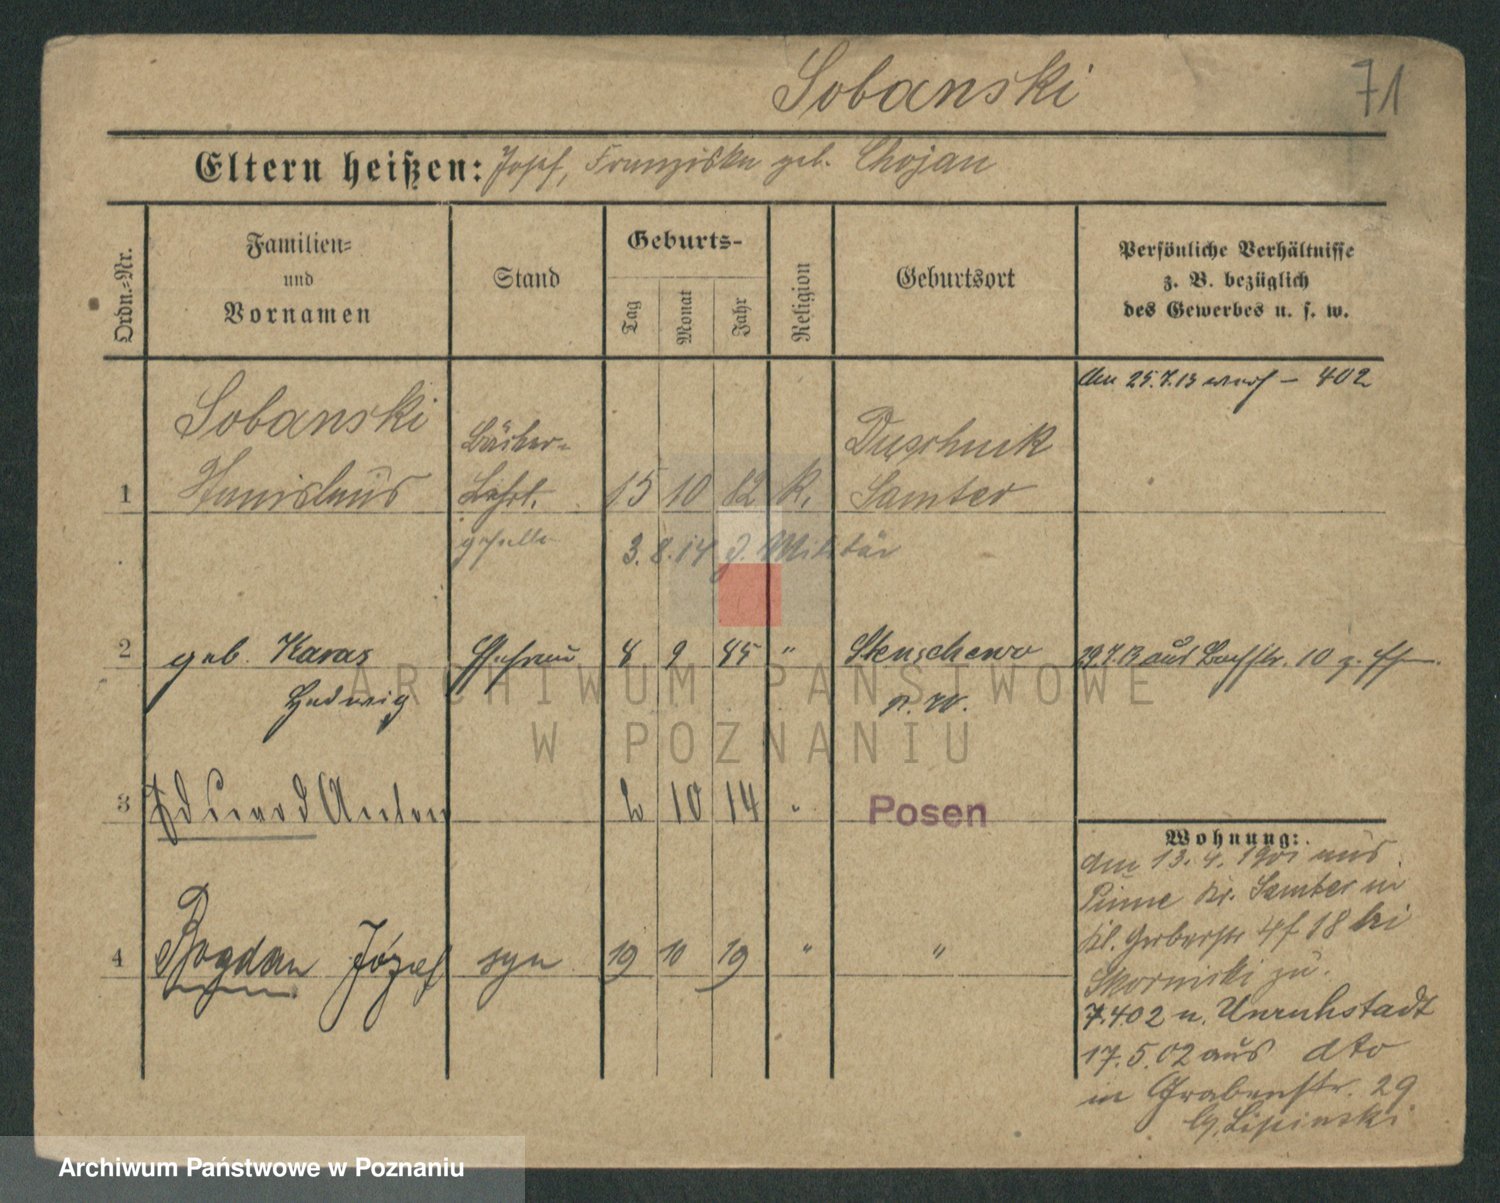 Sobanski
71
Eltern heißen: Josef, Franziska geb. Chojan
Ordn.-Nr.
Familien- und Vornamen
Stand
Geburts-
Tag
Monat
Jahr
Religion
Geburtsort
Persönliche Verhältnisse
z. B. bezüglich
des Gewerbes u. s. w.
den 25.7.13 – 402
Sobanski
Bäcker-
Duschnik
1 Stanislaus Lehrl. 15 10 82 K. Samter
geselle 3.8.14 z. Militär
2 geb. Karas Ehefrau 8 9 85 " Stenschewo 29.7.13 aus 10
Hedwig P. W.
3 Eduard Anton 2 10 14 " Posen
Wohnung:
den 13.4.1901 aus
Pinne Kr. Samter in
Kl. Gerberstr 4 18 bei
Skorniski zu.
4 Bogdan Józef syn 19 10 19 " "
7.402 n. Unruhstadt
17.5.02 aus dto
in Grabenstr. 29
b/ Lipinski
ARCHIWUM PAŃSTWOWE
W POZNANIU
Archiwum Państwowe w Poznaniu